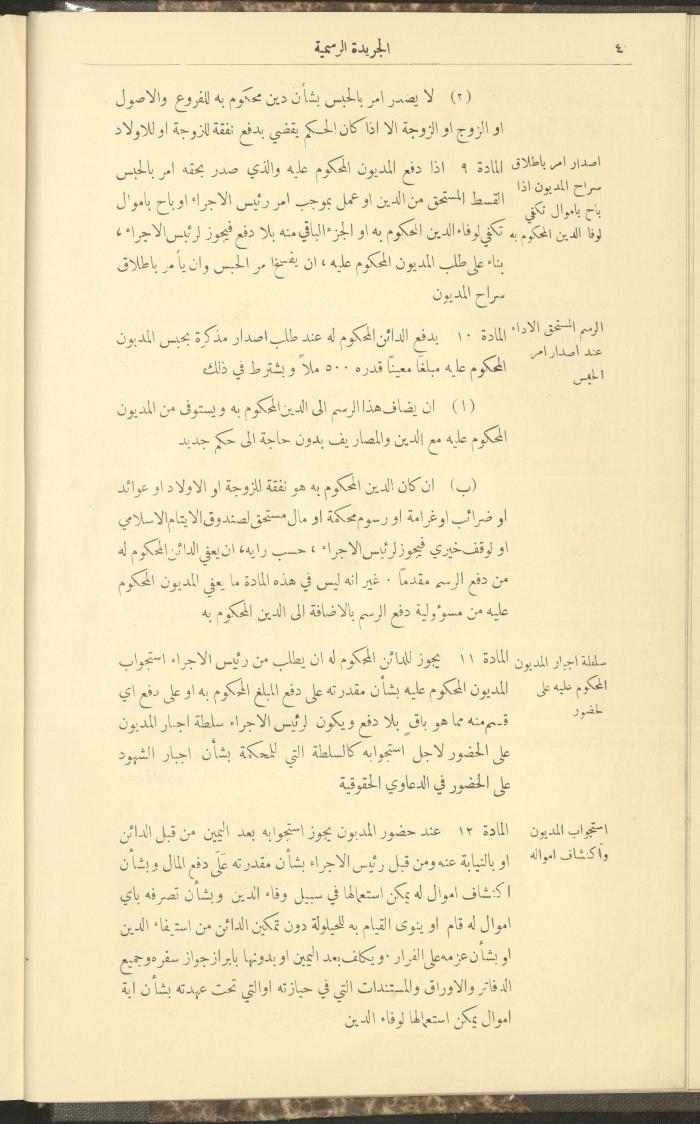 ٤
الجريدة الرسمية
(٢) لا يصدر امر بالحبس بشأن دين محكوم به للفروع والاصول
او الزوج او الزوجة الا اذا كان الحكم يقضي بدفع نفقة للزوجة او للاولاد
اصدار امر باطلاق
سراح المديون اذا
باح باموال تكفي
لوفا الدين المحكوم به
المادة ٩ اذا دفع المديون المحكوم عليه والذي صدر بحقه امر بالحبس
القسط المستحق من الدين او عمل بموجب امر رئيس الاجراء او باح باموال
تكفي لوفاء الدين المحكوم به او الجزء الباقي منه بلا دفع فيجوز لرئيس الاجراء،
بناء على طلب المديون المحكوم عليه، ان يفسخ امر الحبس وان يأمر باطلاق
سراح المديون
الرسم المستحق الاداء
عند اصدار امر
الحبس
المادة ١٠ يدفع الدائن المحكوم له عند طلب اصدار مذكرة بحبس المديون
المحكوم عليه مبلغاً معيناً قدره ٥٠٠ ملاً ويشترط في ذلك
(ا) ان يضاف هذا الرسم الى الدين المحكوم به ويستوفى من المديون
المحكوم عليه مع الدين والمصاريف بدون حاجة الى حكم جديد
(ب) ان كان الدين المحكوم به هو نفقة للزوجة او الاولاد او عوائد
او ضرائب او غرامة او رسوم محكمة او مال مستحق لصندوق الايتام الاسلامي
او لوقف خيري فيجوز لرئيس الاجراء، حسب رايه، ان يعفي الدائن المحكوم له
من دفع الرسم مقدماً. غير انه ليس في هذه المادة ما يعفي المديون المحكوم
عليه من مسؤولية دفع الرسم بالاضافة الى الدين المحكوم به
سلطة اجبار المديون
المحكوم عليه على
لحضور
المادة ١١ يجوز للدائن المحكوم له ان يطلب من رئيس الاجراء استجواب
المديون المحكوم عليه بشأن مقدرته على دفع المبلغ المحكوم به او على دفع اي
قسم منه مما هو باقٍ بلا دفع ويكون لرئيس الاجراء سلطة اجبار المديون
على الحضور لاجل استجوابه كالسلطة التي للمحكمة بشأن اجبار الشهود
على الحضور في الدعاوي الحقوقية
استجواب المديون
واكتشاف امواله
المادة ١٢ عند حضور المديون يجوز استجوابه بعد اليمين من قبل الدائن
او بالنيابة عنه ومن قبل رئيس الاجراء بشأن مقدرته عَلَى دفع المال وبشأن
اكتشاف اموال له يمكن استعمالها في سبيل وفاء الدين وبشأن تصرفه باي
اموال له قام او ينوى القيام به للحيلولة دون تمكين الدائن من استيفاء الدين
او بشأن عزمه على الفرار. ويكلف بعد اليمين او بدونها بابراز جواز سفره وجميع
الدفاتر والاوراق والمستندات التي في حيازته او التي تحت عهدته بشأن اية
اموال يمكن استعمالها لوفاء الدين